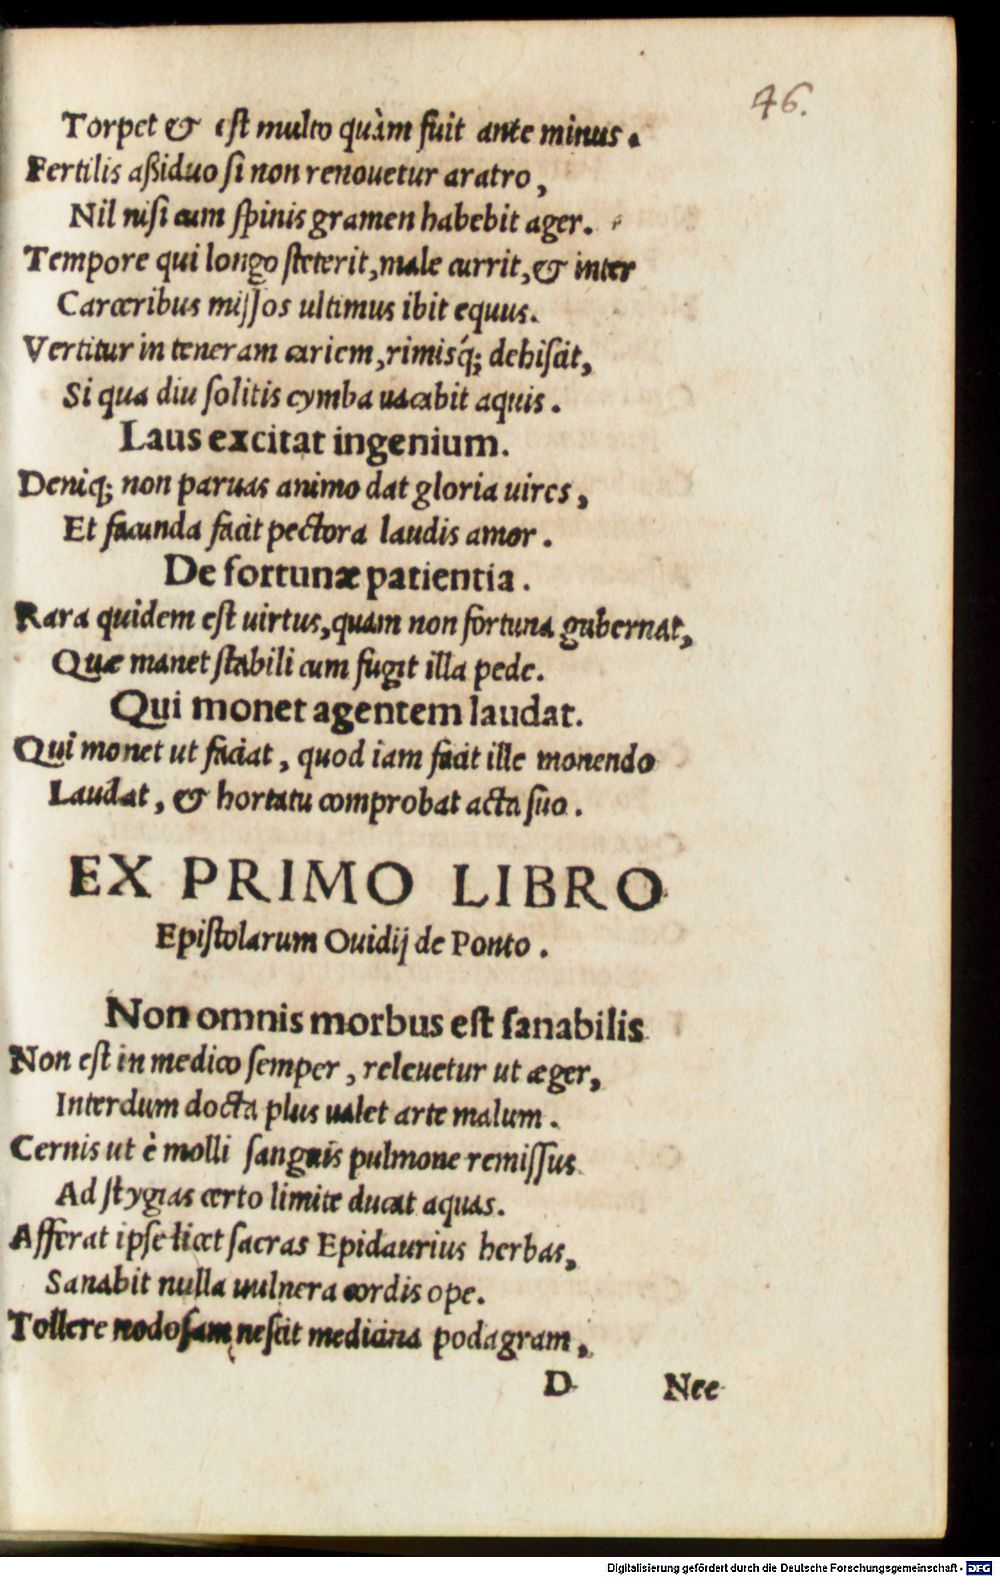 46.
Torpet & est multo quàm fuit ante minus.
Fertilis aßiduo si non renouetur aratro,
Nil nisi cum spinis gramen habebit ager.
Tempore qui longo steterit, male currit, & inter
Carceribus missos ultimus ibit equus.
Vertitur in teneram cariem, rimisq́; dehiscit,
Si qua diu solitis cymba uacabit aquis.
Laus excitat ingenium.
Deniq; non paruas animo dat gloria uires,
Et facunda facit pectora laudis amor.
De fortunæ patientia.
Rara quidem est uirtus, quam non fortuna gubernat,
Quæ manet stabili cum fugit illa pede.
Qui monet agentem laudat.
Qui monet ut faciat, quod iam facit ille monendo
Laudat, & hortatu comprobat acta suo.
EX PRIMO LIBRO
Epistolarum Ouidij de Ponto.
Non omnis morbus est sanabilis
Non est in medico semper, releuetur ut æger,
Interdum docta plus ualet arte malum.
Cernis ut è molli sanguis pulmone remissus
Ad stygias certo limite ducat aquas.
Afferat ipse licet sacras Epidaurius herbas,
Sanabit nulla uulnera cordis ope.
Tollere nodosam nescit medicina podagram,
D Nee
Digitalisierung gefördert durch die Deutsche Forschungsgemeinschaft - DFG